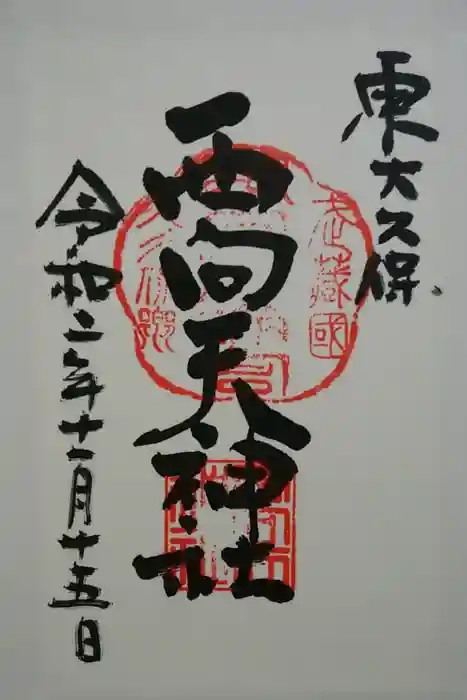 東大久保
西向天神社
令和二年十一月十五日
武蔵國